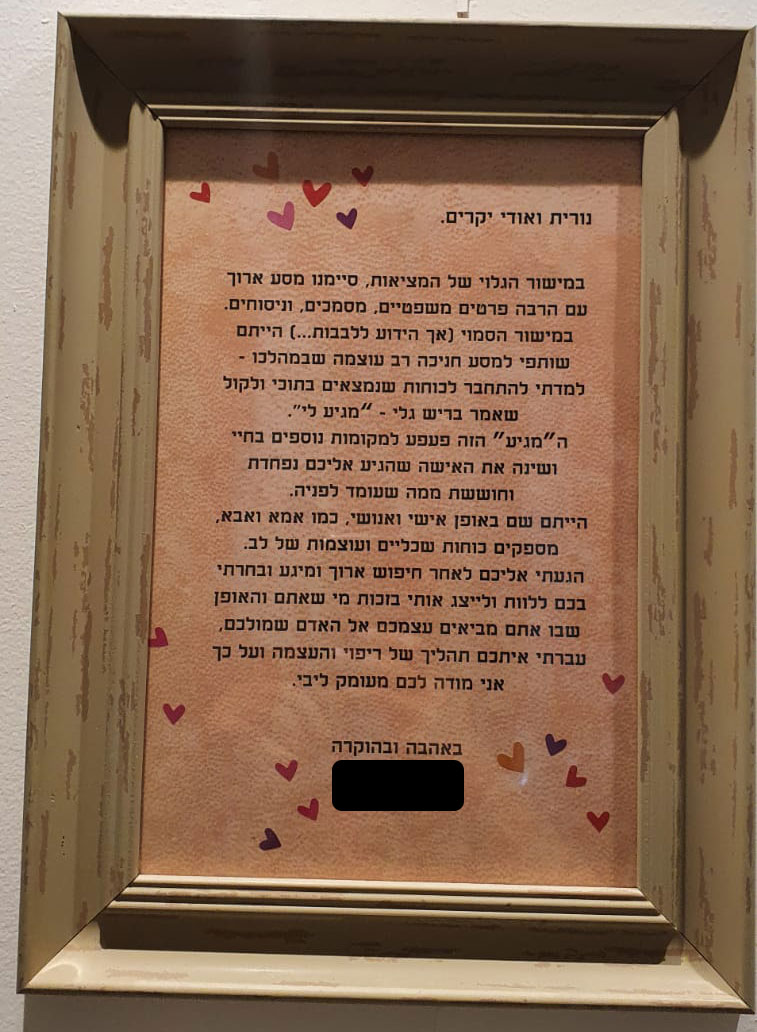 נורית ואודי יקרים.
במישור הגלוי של המציאות, סיימנו מסע ארוך
עם הרבה פרטים משפטיים, מסמכים, וניסוחים.
במישור הסמוי (אך הידוע ללבבות...) הייתם
שותפי למסע חניכה רב עוצמה שבמהלכו -
למדתי להתחבר לכוחות שנמצאים בתוכי ולקול
שאמר בריש גלי - "מגיע לי".
ה"מגיע" הזה פעפע למקומות נוספים בחיי
ושינה את האישה שהגיע אליכם נפחדת
וחוששת ממה שעומד לפניה.
הייתם שם באופן אישי ואנושי, כמו אמא ואבא,
מספקים כוחות שכליים ועוצמות של לב.
הגעתי אליכם לאחר חיפוש ארוך ומיגע ובחרתי
בכם ללוות ולייצג אותי בזכות מי שאתם והאופן
שבו אתם מביאים עצמכם אל האדם שמולכם,
עברתי איתכם תהליך של ריפוי והעצמה ועל כך
אני מודה לכם מעומק ליבי.
באהבה ובהוקרה